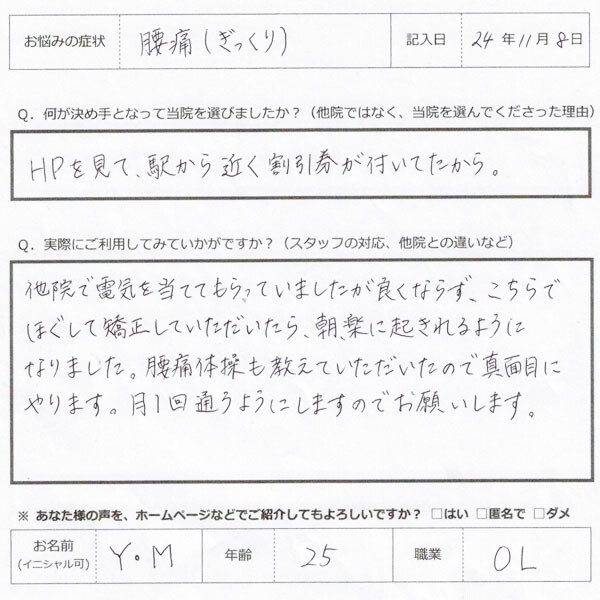 お悩みの症状 腰痛(ぎっくり) 記入日 24年11月8日
Q. 何が決め手となって当院を選びましたか?(他院ではなく、当院を選んでくださった理由)
HPを見て、駅から近く割引券が付いてたから。
Q. 実際にご利用してみていかがですか?(スタッフの対応、他院との違いなど)
他院で電気を当ててもらっていましたが良くならず、こちらで
ほぐして矯正していただいたら、朝、楽に起きれるように
なりました。腰痛体操も教えていただいたので真面目に
やります。月1回通うようにしますのでお願いします。
※ あなた様の声を、ホームページなどでご紹介してもよろしいですか? □はい □匿名で □ダメ
お名前 Y・M 年齢 25 職業 OL
(イニシャル可)